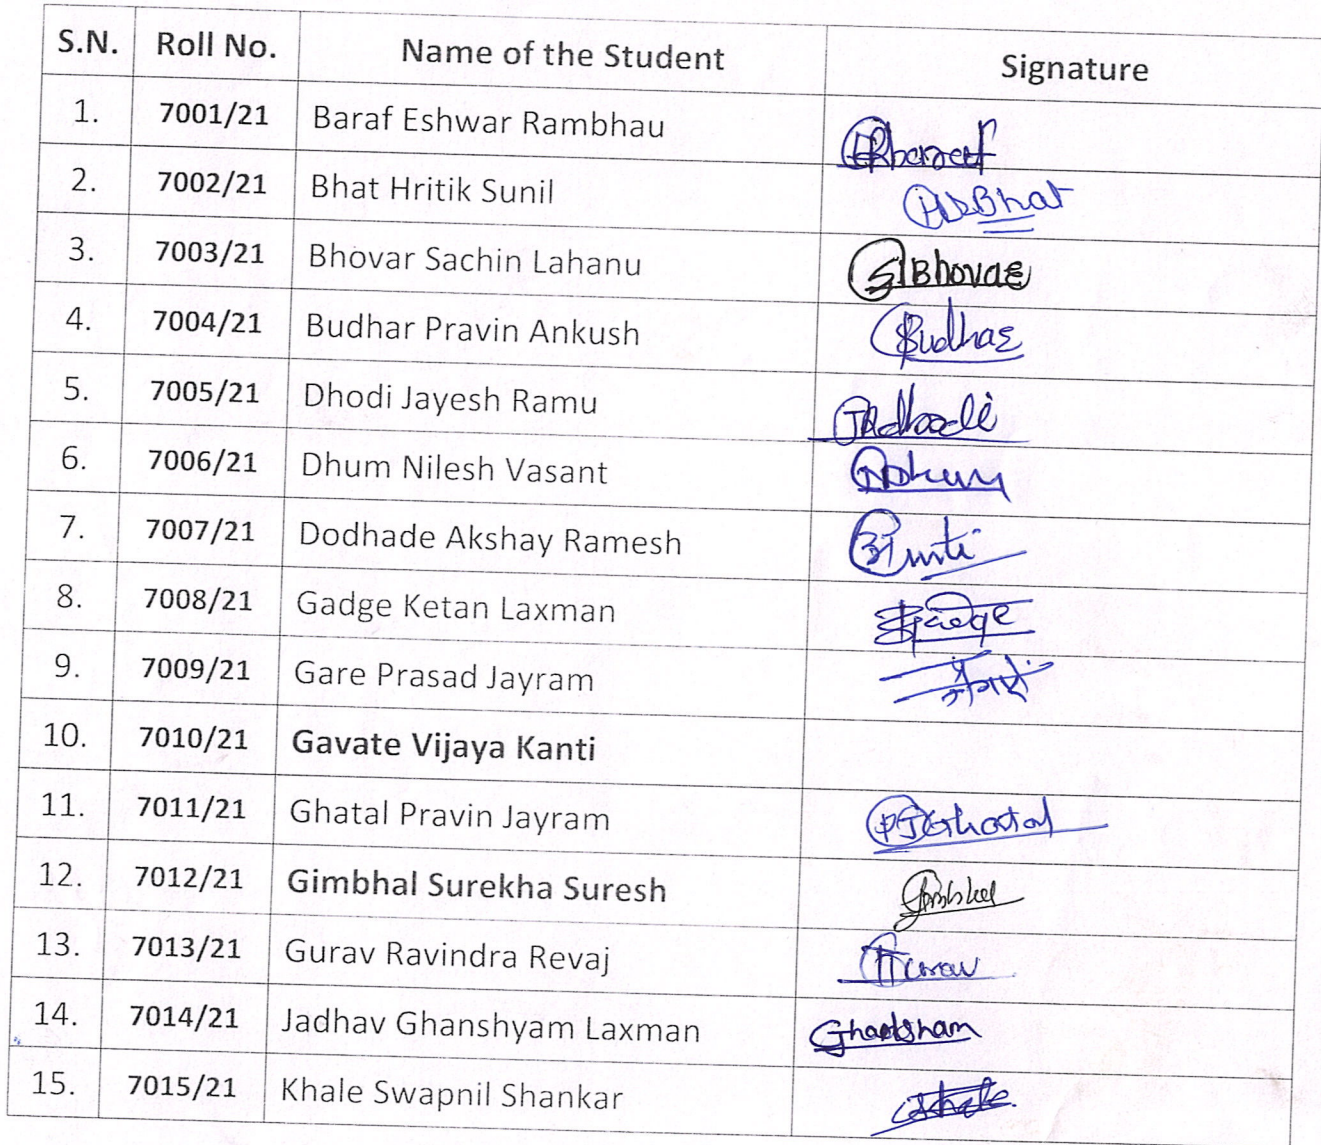 S.N. Roll No. Name of the Student Signature
1. 7001/21 Baraf Eshwar Rambhau
2. 7002/21 Bhat Hritik Sunil HSBhat
3. 7003/21 Bhovar Sachin Lahanu Bhovar
4. 7004/21 Budhar Pravin Ankush Budhar
5. 7005/21 Dhodi Jayesh Ramu JRdhodi
6. 7006/21 Dhum Nilesh Vasant
7. 7007/21 Dodhade Akshay Ramesh
8. 7008/21 Gadge Ketan Laxman
9. 7009/21 Gare Prasad Jayram
10. 7010/21 Gavate Vijaya Kanti
11. 7011/21 Ghatal Pravin Jayram PJGhatal
12. 7012/21 Gimbhal Surekha Suresh
13. 7013/21 Gurav Ravindra Revaj Gurav
14. 7014/21 Jadhav Ghanshyam Laxman
15. 7015/21 Khale Swapnil Shankar